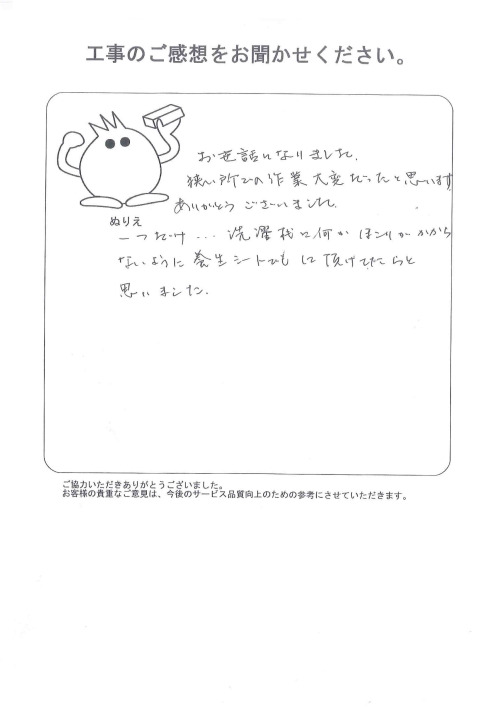 工事のご感想をお聞かせください。
お世話になりました。
狭い所での作業大変だったと思います
ありがとうございました。
ぬりえ
一つだけ...洗濯機に何かほこりがかから
ないように養生シートでも して頂けてたらと
思いました。
ご協力いただきありがとうございました。
お客様の貴重なご意見は、今後のサービス品質向上のための参考にさせていただきます。